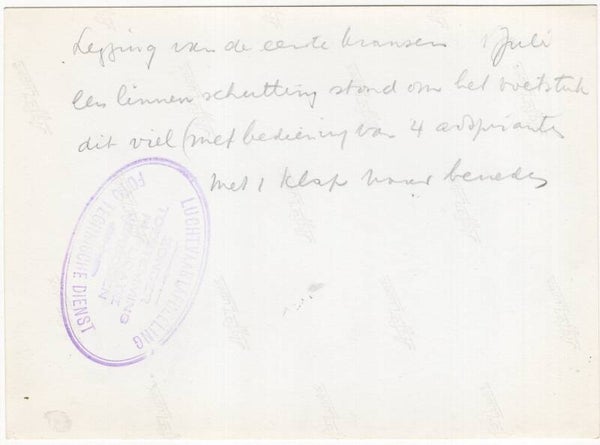 Legging van de eerste kransen 1 Juli
een linnen schutting stond om het voetstuk
dit viel (met bediening van 4 adspiranten
met 1 klap naar beneden
LUCHTVAARTAFDEELING
FOTO TECHNISCHE DIENST
ZONDER